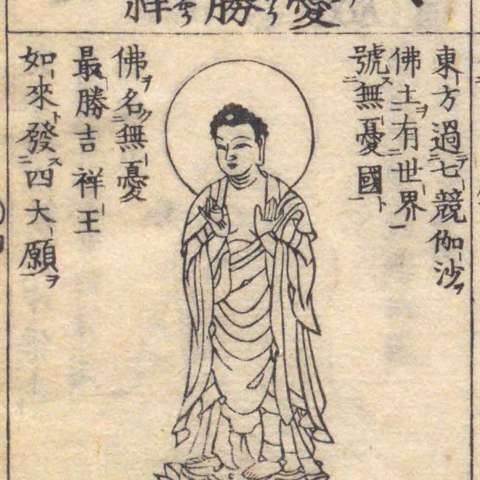 憂勝祥
東方過七競伽沙
佛土有世界
號無憂國
佛名無憂
最勝吉祥王
如來發四大願